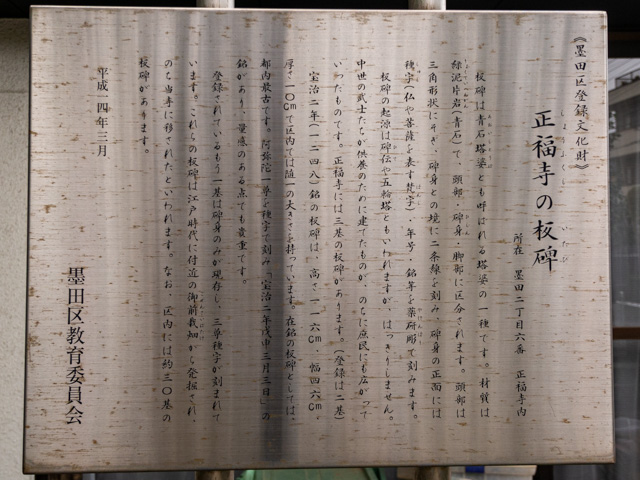 《墨田区登録文化財》
正福寺の板碑
しょうふくじ
いたび
所在　墨田二丁目六番　正福寺内
板碑は青石塔婆とも呼ばれる塔婆の一種です。材質は
緑泥片岩(青石)で、頭部・碑身・脚部に区分されます。頭部は
三角形状にそぎ、碑身との境に二条線を刻み、碑身の正面には
種字(仏や菩薩を表す梵字)・年号・銘等を薬研彫で刻みます。
板碑の起源は碑伝や五輪塔ともいわれますが、はっきりしません。
中世の武士たちが供養のために建てたものが、のちに庶民にも広がって
いったものです。正福寺には三基の板碑があります。(登録は二基)
宝治二年(一二四八)銘の板碑は、高さ一一六cm・幅四六cm・
厚さ一〇cmで区内では随一の大きさを持っています。在銘の板碑としては、
都内最古です。阿弥陀一尊を種字で刻み「宝治二年戊申三月三日」の
銘があり、量感のある点でも貴重です。
登録されているもう一基は碑身のみが現存し、三尊種字が刻まれて
います。これらの板碑は江戸時代に付近の御前栽畑から発掘され、
のち当寺に移されたといわれます。なお、区内には約三〇基の
板碑があります。
平成一四年三月
墨田区教育委員会